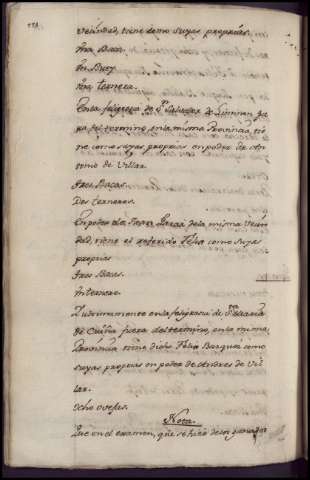 Vecindad, tiene como suyas propias.
Una Baca.
Un Buey
Una ternera.
En la feligresia de Sn Salvador de
ra del termino, en la misma Provincia, tie
ne como suyas propias en poder de An
tonio de Villar.
tres Bacas.
Dos terneros.
En poder de Juan de la misma Vecin
dad, tiene el referido Felix como suyas
propias
tres Bacas.
Un ternero.
Y ultimamente en la feligresia de Sta Maria
de fuera del termino, en la misma
Provincia tiene dicho Felix Bazquez como
suyas propias en poder de Andres de Vi
lar.
ocho ovejas.
Nota
Que en el examen, que se hizo de los ganados